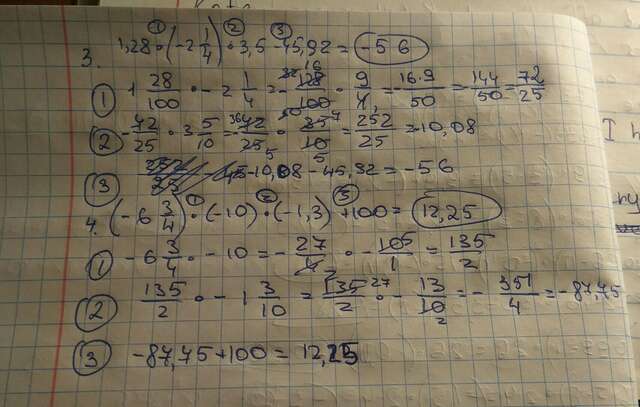 3. 1,28 · (-2 1/4) · 3,5 - 45,92 = -56
① 1 28/100 · -2 1/4 = -128/100 · 9/4 = -16·9/50 = 144/50 = 72/25
② -72/25 · 3 5/10 = -72/25 · 35/10 = 252/25 = -10,08
③ -10,08 - 45,92 = -56
4. (-6 3/4) · (-10) · (-1,3) + 100 = 12,25
① -6 3/4 · -10 = -27/4 · -10/1 = 135/2
② 135/2 · -1 3/10 = 135/2 · -13/10 = -351/4 = -87,75
③ -87,75 + 100 = 12,25